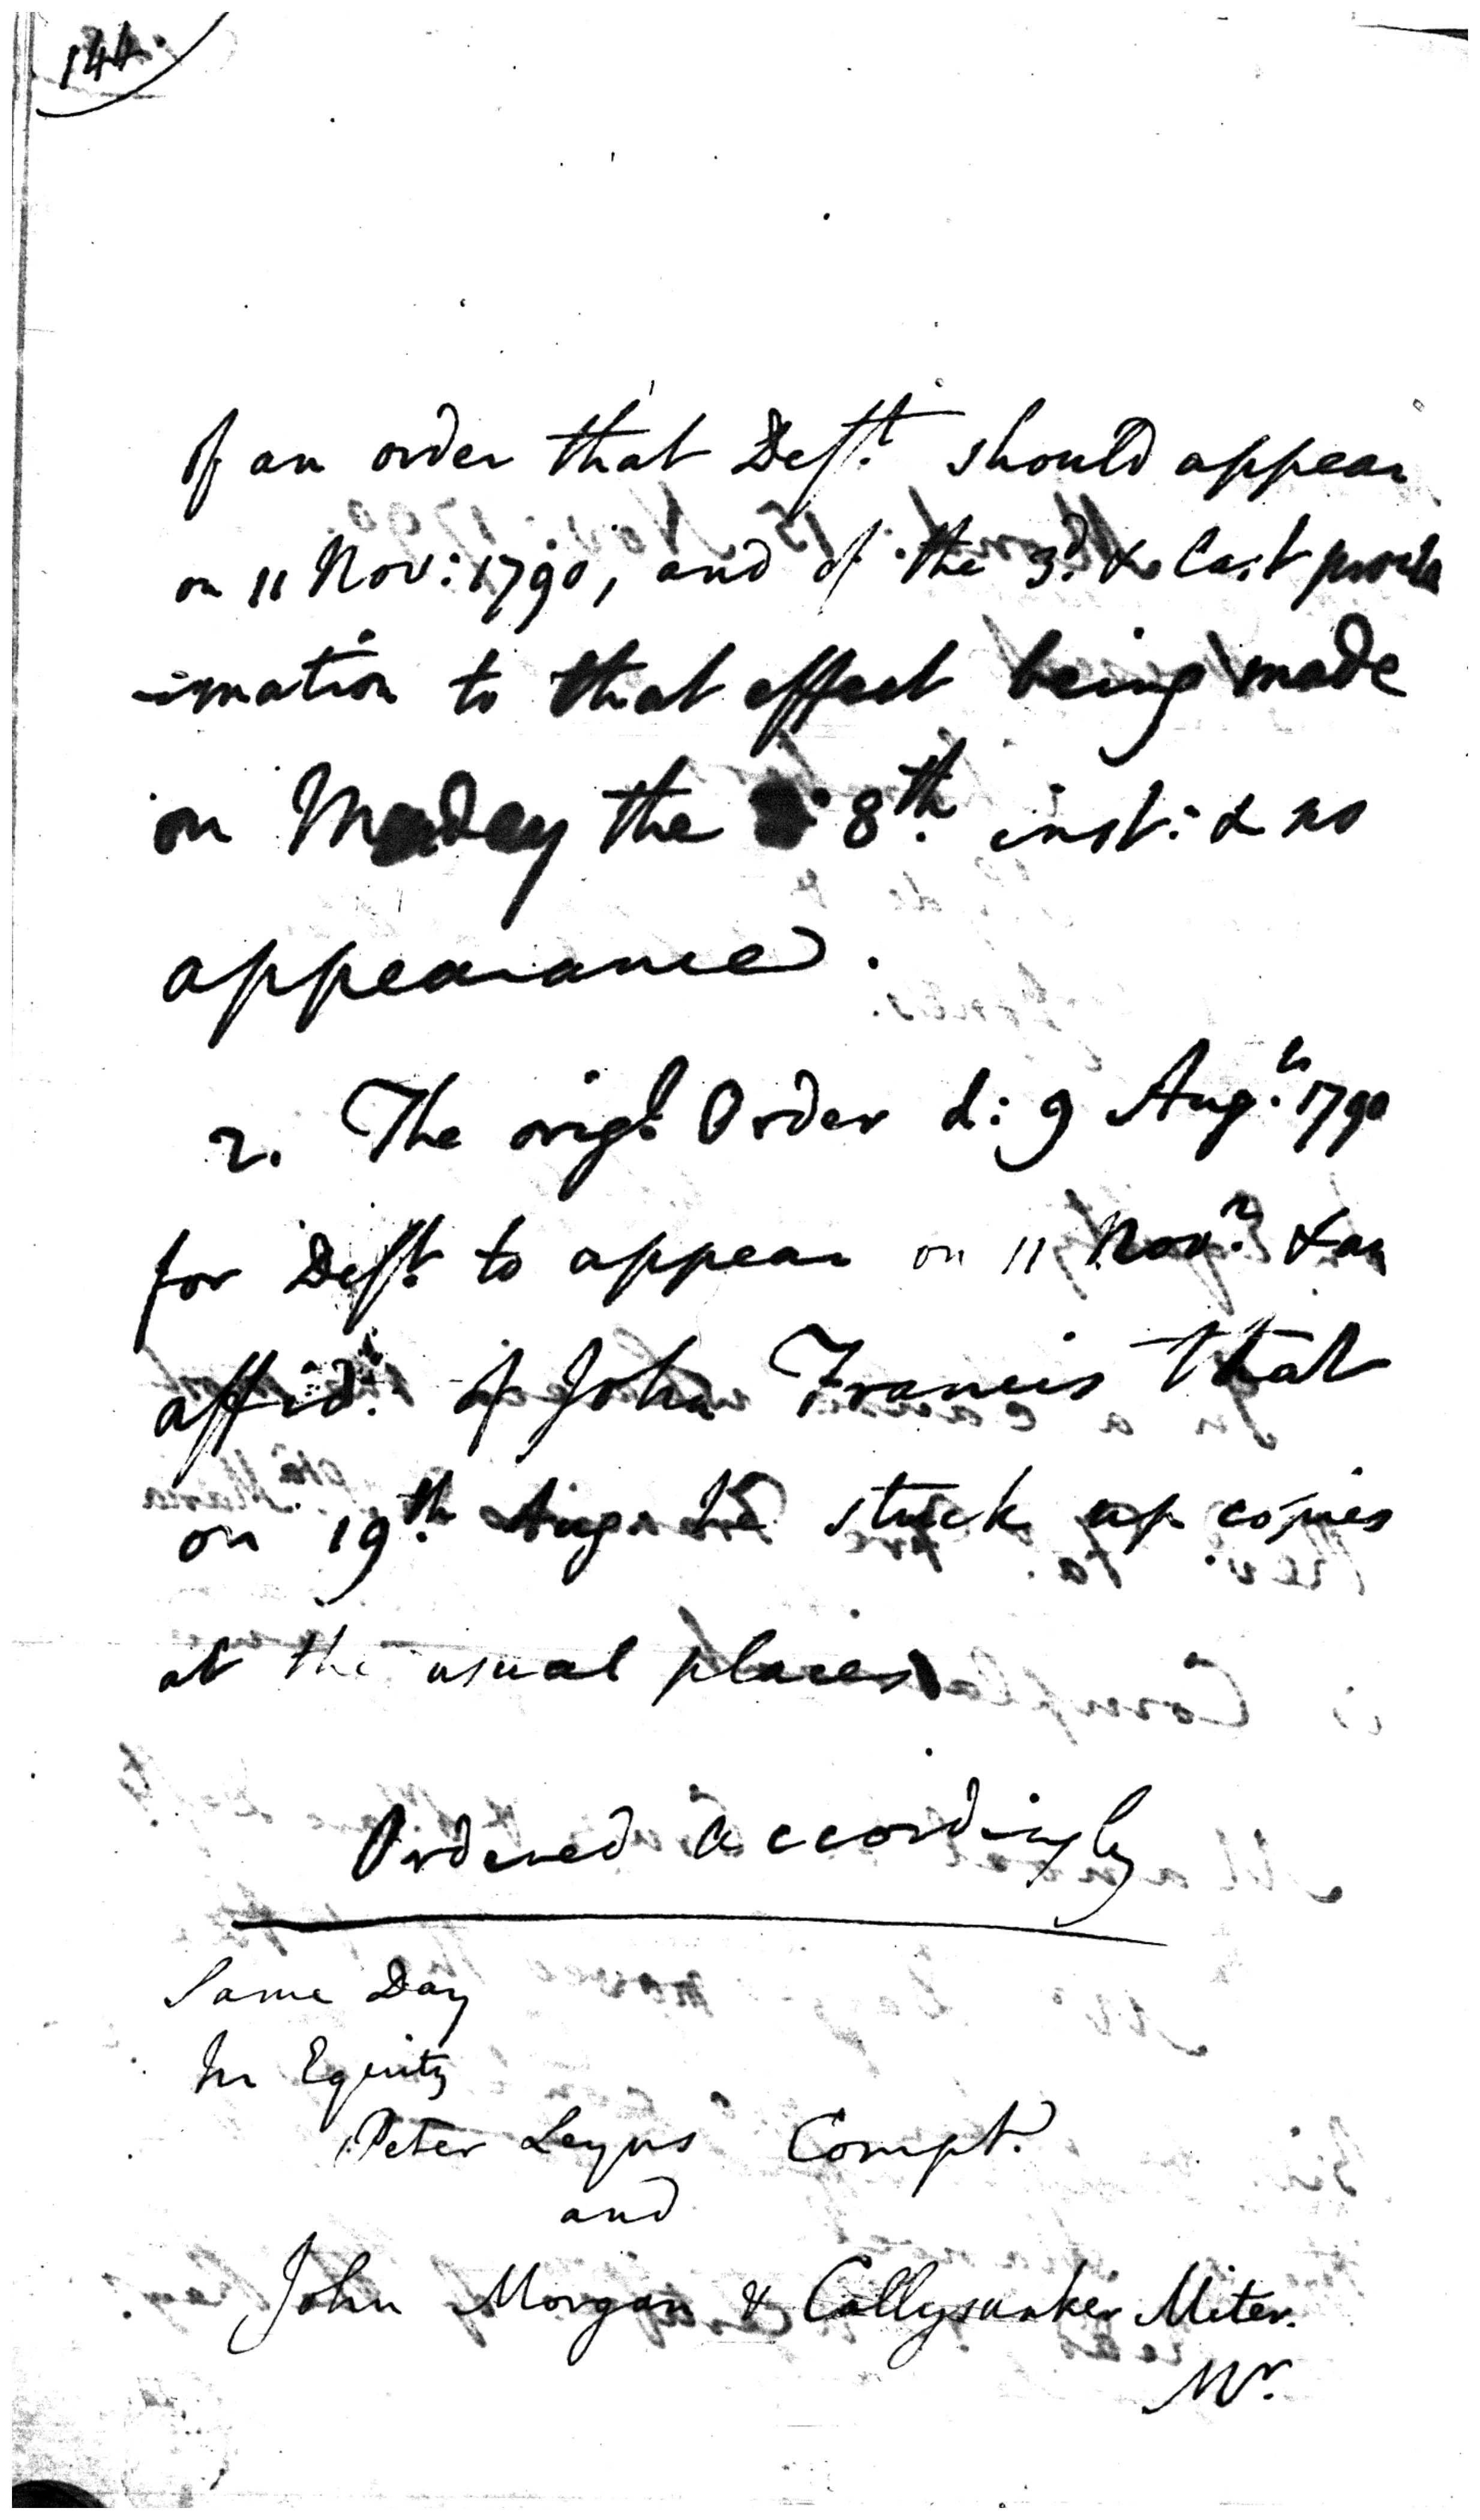 144.
of an order that Deft. should appear
on 11 Nov: 1790, and of the 3d. & last procla
-mation to that effect being made
on Monday the 8th. inst: & no
appearance.
2. The origl. Order d: 9 Aug: 1790
for Deft. to appear on 11 Novr. & an
affidt. of John Francis that
on 19th. Aug. he stuck up copies
at the usual places
Ordered accordingly
Same Day
In Equity
Peter Compt.
and
John Morgan & Callysunker Miter.
Mr.